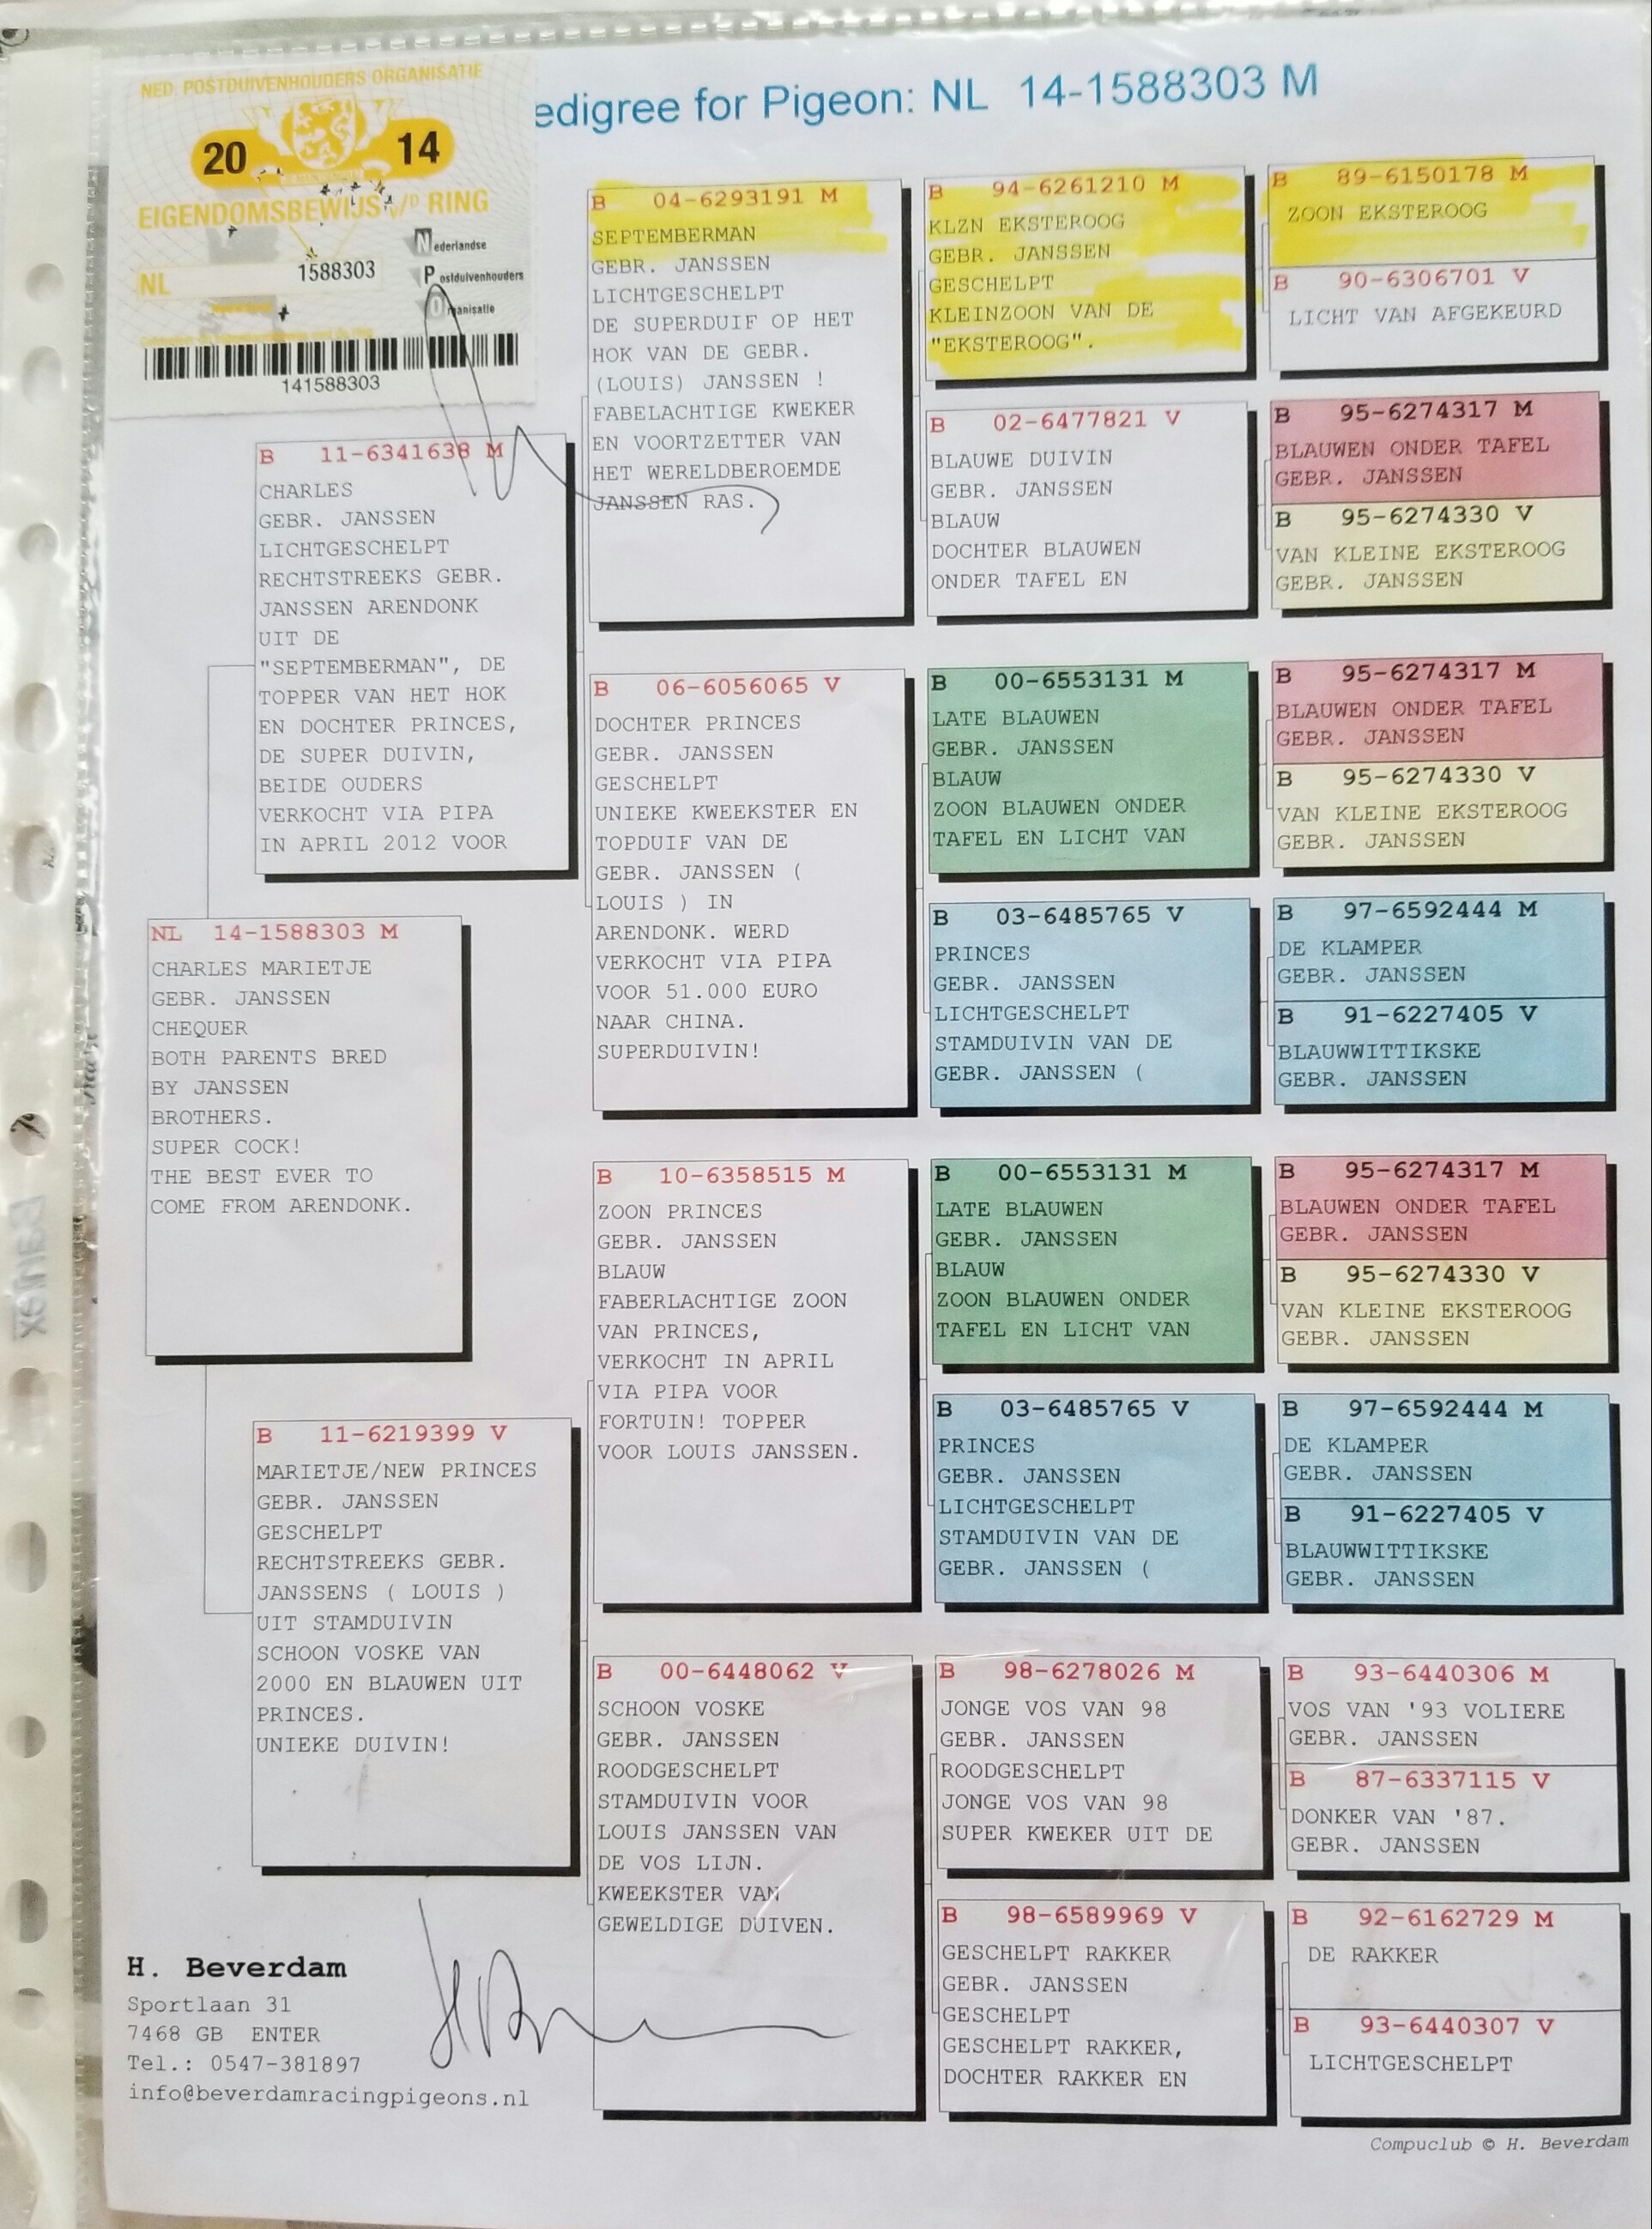 NED. POSTDUIVENHOUDERS ORGANISATIE
20 14
EIGENDOMSBEWIJS V/D RING
NL 1588303
Nederlandse
Postduivenhouders
Organisatie
141588303
edigree for Pigeon: NL 14-1588303 M
NL 14-1588303 M
CHARLES MARIETJE
GEBR. JANSSEN
CHEQUER
BOTH PARENTS BRED
BY JANSSEN
BROTHERS.
SUPER COCK!
THE BEST EVER TO
COME FROM ARENDONK.
B 11-6341638 M
CHARLES
GEBR. JANSSEN
LICHTGESCHELPT
RECHTSTREEKS GEBR.
JANSSEN ARENDONK
UIT DE
"SEPTEMBERMAN", DE
TOPPER VAN HET HOK
EN DOCHTER PRINCES,
DE SUPER DUIVIN,
BEIDE OUDERS
VERKOCHT VIA PIPA
IN APRIL 2012 VOOR
B 11-6219399 V
MARIETJE/NEW PRINCES
GEBR. JANSSEN
GESCHELPT
RECHTSTREEKS GEBR.
JANSSENS ( LOUIS )
UIT STAMDUIVIN
SCHOON VOSKE VAN
2000 EN BLAUWEN UIT
PRINCES.
UNIEKE DUIVIN!
B 04-6293191 M
SEPTEMBERMAN
GEBR. JANSSEN
LICHTGESCHELPT
DE SUPERDUIF OP HET
HOK VAN DE GEBR.
(LOUIS) JANSSEN !
FABELACHTIGE KWEKER
EN VOORTZETTER VAN
HET WERELDBEROEMDE
JANSSEN RAS.
B 06-6056065 V
DOCHTER PRINCES
GEBR. JANSSEN
GESCHELPT
UNIEKE KWEEKSTER EN
TOPDUIF VAN DE
GEBR. JANSSEN (
LOUIS ) IN
ARENDONK. WERD
VERKOCHT VIA PIPA
VOOR 51.000 EURO
NAAR CHINA.
SUPERDUIVIN!
B 10-6358515 M
ZOON PRINCES
GEBR. JANSSEN
BLAUW
FABERLACHTIGE ZOON
VAN PRINCES,
VERKOCHT IN APRIL
VIA PIPA VOOR
FORTUIN! TOPPER
VOOR LOUIS JANSSEN.
B 00-6448062 V
SCHOON VOSKE
GEBR. JANSSEN
ROODGESCHELPT
STAMDUIVIN VOOR
LOUIS JANSSEN VAN
DE VOS LIJN.
KWEEKSTER VAN
GEWELDIGE DUIVEN.
B 94-6261210 M
KLZN EKSTEROOG
GEBR. JANSSEN
GESCHELPT
KLEINZOON VAN DE
"EKSTEROOG".
B 02-6477821 V
BLAUWE DUIVIN
GEBR. JANSSEN
BLAUW
DOCHTER BLAUWEN
ONDER TAFEL EN
B 00-6553131 M
LATE BLAUWEN
GEBR. JANSSEN
BLAUW
ZOON BLAUWEN ONDER
TAFEL EN LICHT VAN
B 03-6485765 V
PRINCES
GEBR. JANSSEN
LICHTGESCHELPT
STAMDUIVIN VAN DE
GEBR. JANSSEN (
B 00-6553131 M
LATE BLAUWEN
GEBR. JANSSEN
BLAUW
ZOON BLAUWEN ONDER
TAFEL EN LICHT VAN
B 03-6485765 V
PRINCES
GEBR. JANSSEN
LICHTGESCHELPT
STAMDUIVIN VAN DE
GEBR. JANSSEN (
B 98-6278026 M
JONGE VOS VAN 98
GEBR. JANSSEN
ROODGESCHELPT
JONGE VOS VAN 98
SUPER KWEKER UIT DE
B 98-6589969 V
GESCHELPT RAKKER
GEBR. JANSSEN
GESCHELPT
GESCHELPT RAKKER,
DOCHTER RAKKER EN
B 89-6150178 M
ZOON EKSTEROOG
B 90-6306701 V
LICHT VAN AFGEKEURD
B 95-6274317 M
BLAUWEN ONDER TAFEL
GEBR. JANSSEN
B 95-6274330 V
VAN KLEINE EKSTEROOG
GEBR. JANSSEN
B 95-6274317 M
BLAUWEN ONDER TAFEL
GEBR. JANSSEN
B 95-6274330 V
VAN KLEINE EKSTEROOG
GEBR. JANSSEN
B 97-6592444 M
DE KLAMPER
GEBR. JANSSEN
B 91-6227405 V
BLAUWWITTIKSKE
GEBR. JANSSEN
B 95-6274317 M
BLAUWEN ONDER TAFEL
GEBR. JANSSEN
B 95-6274330 V
VAN KLEINE EKSTEROOG
GEBR. JANSSEN
B 97-6592444 M
DE KLAMPER
GEBR. JANSSEN
B 91-6227405 V
BLAUWWITTIKSKE
GEBR. JANSSEN
B 93-6440306 M
VOS VAN '93 VOLIERE
GEBR. JANSSEN
B 87-6337115 V
DONKER VAN '87.
GEBR. JANSSEN
B 92-6162729 M
DE RAKKER
B 93-6440307 V
LICHTGESCHELPT
H. Beverdam
Sportlaan 31
7468 GB ENTER
Tel.: 0547-381897
info@beverdamracingpigeons.nl
Compuclub © H. Beverdam